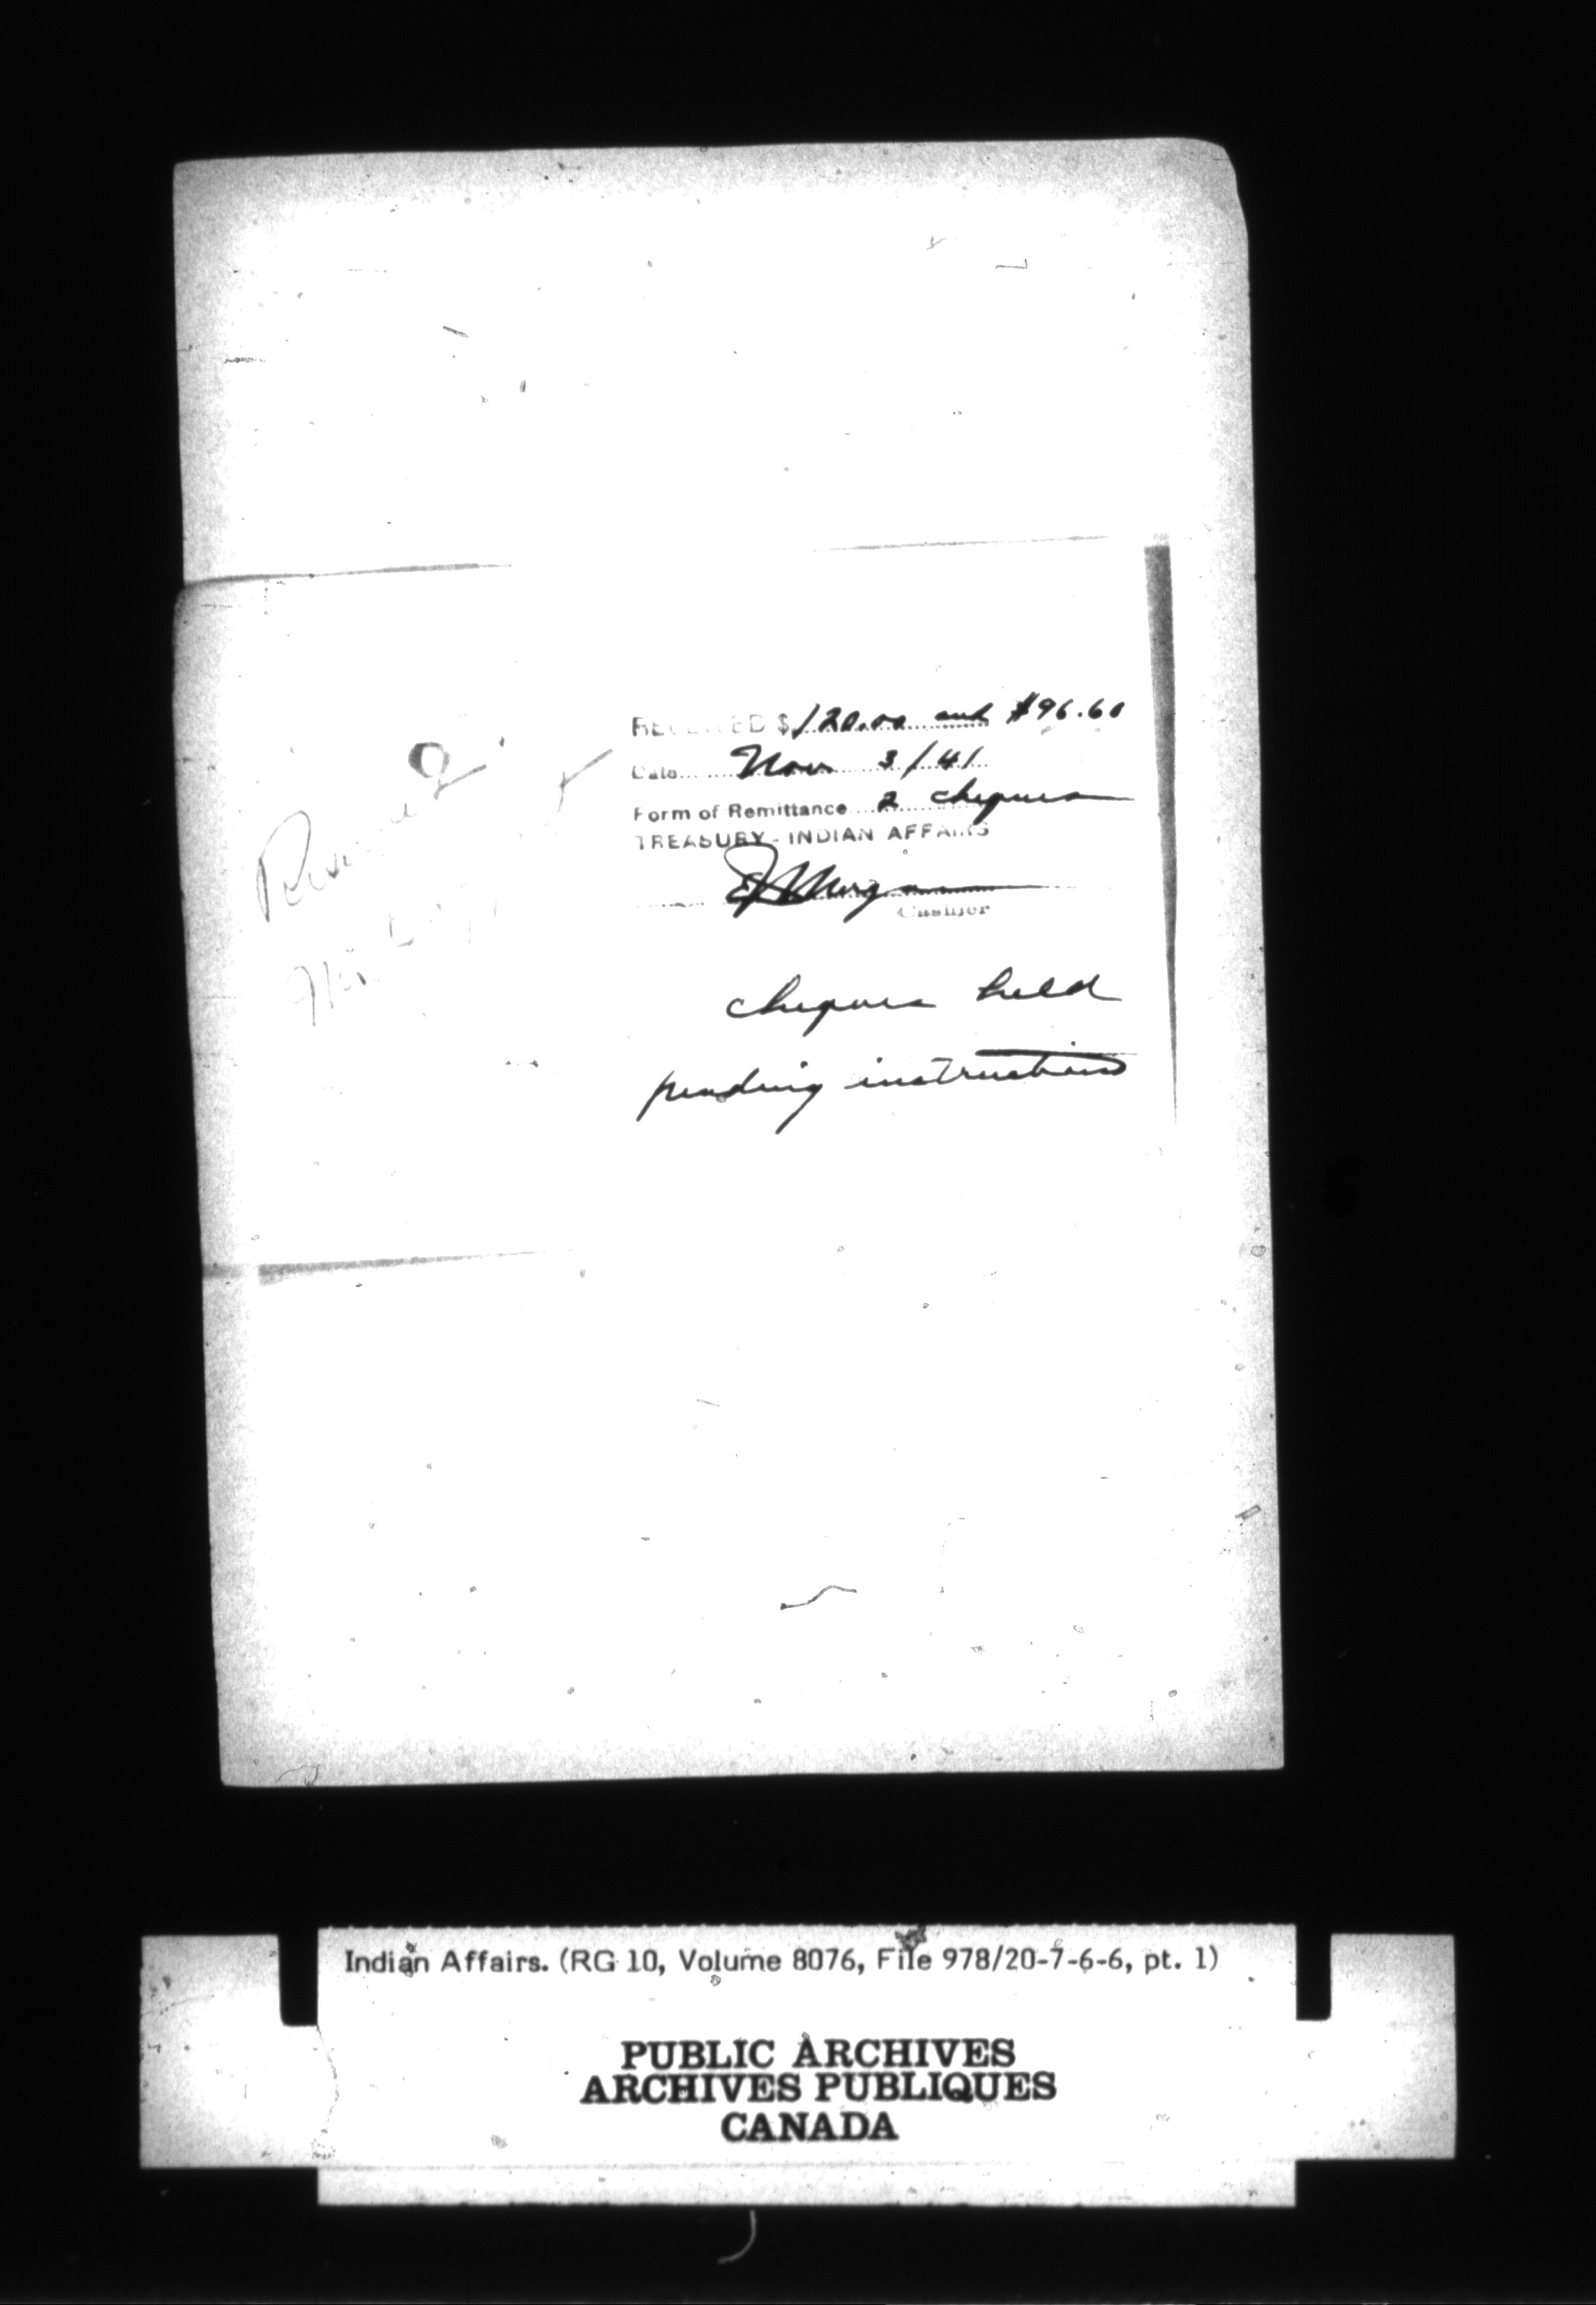 RECEIVED $ 120.00 and $96.60
Date Nov 3/41
Form of Remittance 2 cheques
TREASURY - INDIAN AFFAIRS
Morgan
Cashier
cheques held
pending instructions
Indian Affairs. (RG 10, Volume 8076, File 978/20-7-6-6, pt. 1)
PUBLIC ARCHIVES
ARCHIVES PUBLIQUES
CANADA